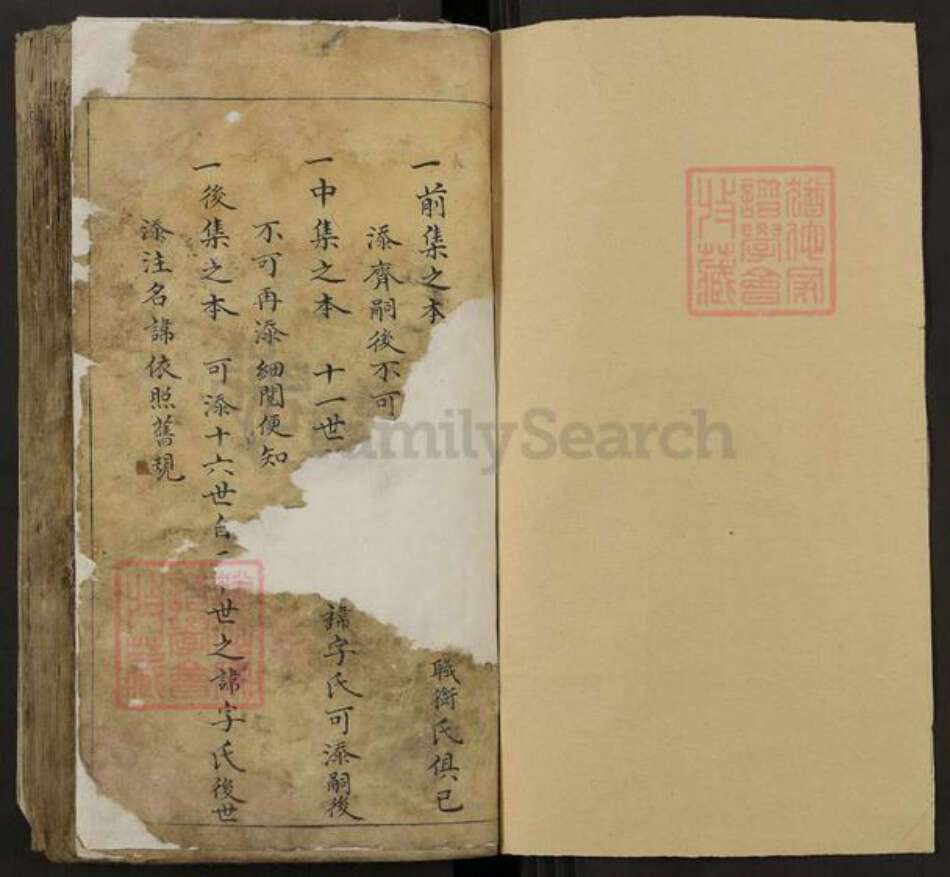 一前集之本
職銜氏俱已
添齊嗣後不可
一中集之本 十一世
諱字氏可添嗣後
不可再添細閱便知
一後集之本 可添十六世
世之諱字氏後世
添注名諱依照舊規
FamilySearch
譜學會
收藏